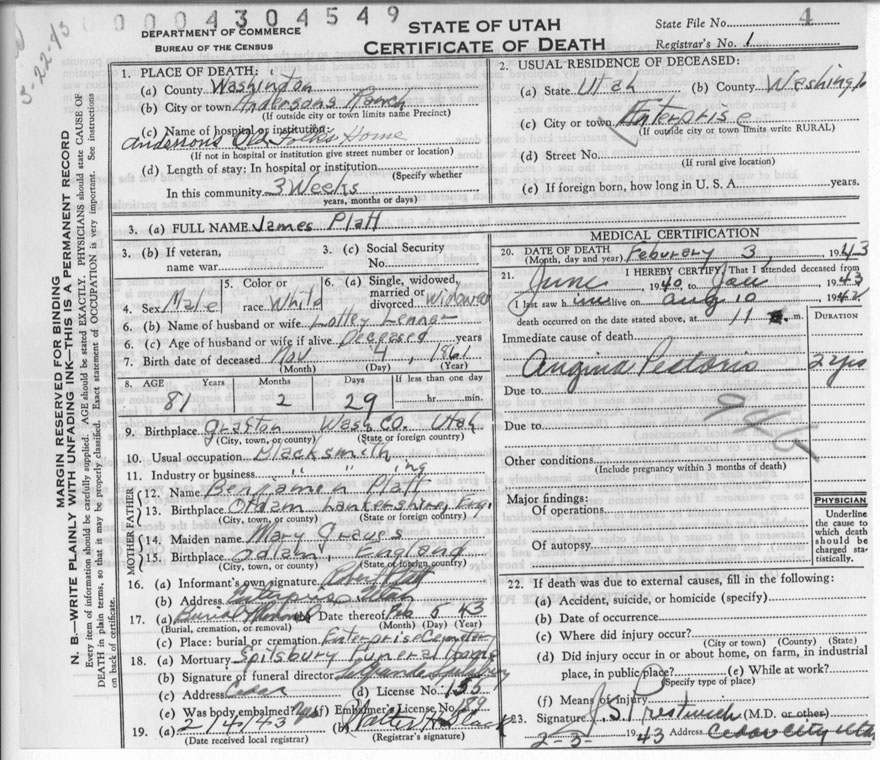 0004304549
5-22-43
DEPARTMENT OF COMMERCE
BUREAU OF THE CENSUS
STATE OF UTAH
CERTIFICATE OF DEATH
State File No. 4
Registrar's No. 1
MARGIN RESERVED FOR BINDING
N. B.—WRITE PLAINLY WITH UNFADING INK—THIS IS A PERMANENT RECORD
Every item of information should be carefully supplied. AGE should be stated EXACTLY. PHYSICIANS should state CAUSE OF
DEATH in plain terms, so that it may be properly classified. Exact statement of OCCUPATION is very important. See instructions
on back of certificate.
1. PLACE OF DEATH:
(a) County Washington
(b) City or town Andersons Ranch
(If outside city or town limits name Precinct)
(c) Name of hospital or institution:
Andersons Old Folks Home
(If not in hospital or institution give street number or location)
(d) Length of stay: In hospital or institution
(Specify whether
In this community 3 Weeks
years, months or days)
2. USUAL RESIDENCE OF DECEASED:
(a) State Utah (b) County Washingto
(c) City or town Enterprise
(If outside city or town limits write RURAL)
(d) Street No.
(If rural give location)
(e) If foreign born, how long in U. S. A. years.
3. (a) FULL NAME James Platt
3. (b) If veteran,
name war
3. (c) Social Security
No.
4. Sex Male
5. Color or
race White
6. (a) Single, widowed,
married or
divorced Widowed
6. (b) Name of husband or wife Lottey
6. (c) Age of husband or wife if alive Deceased years
7. Birth date of deceased Nov 4, 1861
(Month) (Day) (Year)
8. AGE Years Months Days If less than one day
81 2 29 hr. min.
9. Birthplace Grafton Wash Co. Utah
(City, town, or county) (State or foreign country)
10. Usual occupation Blacksmith
11. Industry or business " " ing
MOTHER FATHER
12. Name Benjamen Platt
13. Birthplace Oldam Lankershire, Eng.
(City, town, or county) (State or foreign country)
14. Maiden name Mary Graves
15. Birthplace Odlam, England
(City, town, or county) (State or foreign country)
16. (a) Informant's own signature Platt
(b) Address Enterprise Utah
17. (a) Burial (b) Date thereof Feb 5 43
(Burial, cremation, or removal) (Month) (Day) (Year)
(c) Place: burial or cremation Enterprise Cemetery
18. (a) Mortuary Spilsbury Funeral Home
(b) Signature of funeral director Spilsbury
(c) Address Cedar (d) License No. 155
(e) Was body embalmed? Yes (f) Embalmer's License No. 189
19. (a) 2/4/43 (b) Walter H. Slack
(Date received local registrar) (Registrar's signature)
MEDICAL CERTIFICATION
20. DATE OF DEATH
(Month, day and year) Feburery 3, 1943
21. I HEREBY CERTIFY That I attended deceased from
June 1940 to Jan 1943
I last saw him alive on Aug 10 1942
death occurred on the date stated above, at 11 m.
DURATION
Immediate cause of death
Angina Pectoris 2 yrs
Due to
Due to
Other conditions
(Include pregnancy within 3 months of death)
Major findings:
Of operations
Of autopsy
PHYSICIAN
Underline
the cause to
which death
should be
charged sta-
tistically.
22. If death was due to external causes, fill in the following:
(a) Accident, suicide, or homicide (specify)
(b) Date of occurrence
(c) Where did injury occur?
(City or town) (County) (State)
(d) Did injury occur in or about home, on farm, in industrial
place, in public place? (e) While at work?
(Specify type of place)
(f) Means of injury
23. Signature J. S. Prestwich (M.D. or other)
2-3- 1943 Address Cedar City Utah